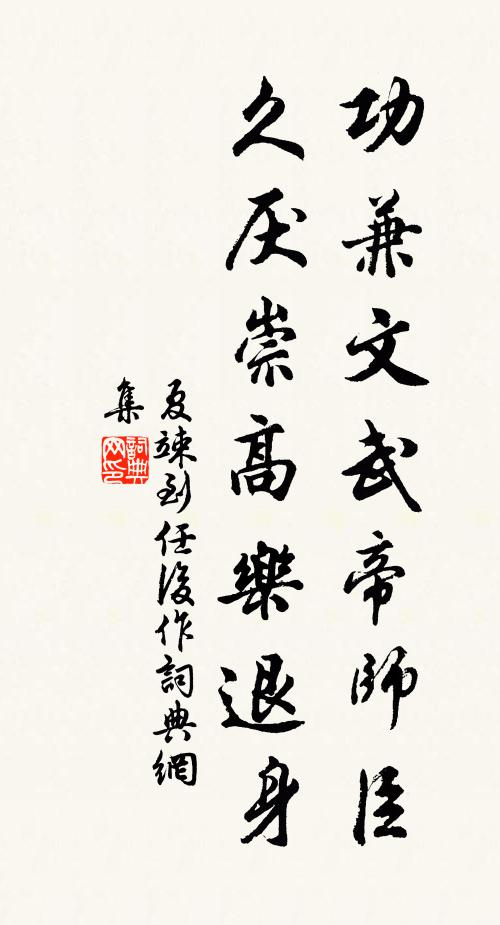 功兼文武帝師臣
久厌崇高樂退身
夏竦到任後作詞典網
集
詞典網印